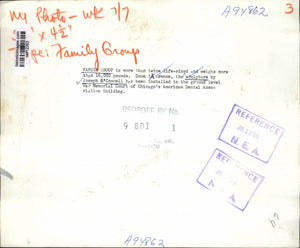 A94862
3
My Photo - WK 7/7
" x 4½"
Family Group
FAMILY GROUP is more than twice life-sized and weighs more
than 10,000 pounds. Done in bronze, the sculpture by
Joseph O'Connell has been installed in the ground level
War Memorial Court of Chicago's American Dental Asso-
ciation Building.
REORDER BY No.
9 801 1
INC.
REFERENCE
N.E.A.
REFERENCE
N.E.A.
A94862